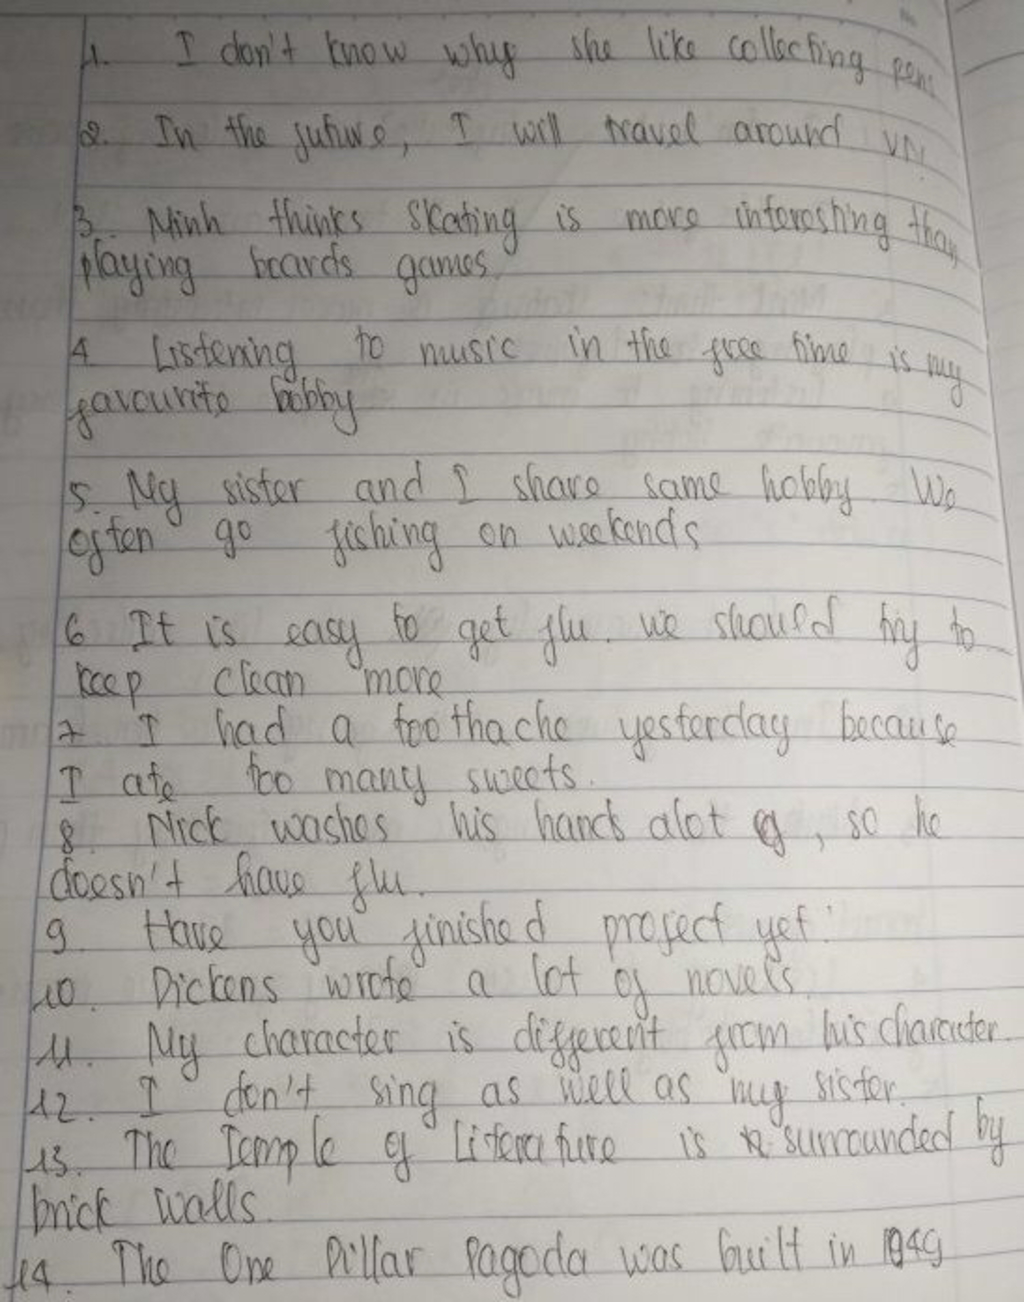 1. I don't know why she like collecting pens
2. In the future, I will travel around VN.
3. Minh thinks skating is more interesting than
playing boards games
4 Listening to music in the free time is my
favourite hobby
5. My sister and I share same hobby. We
often go fishing on weekends
6 It is easy to get flu. we should try to
keep clean more
7 I had a toothache yesterday because
I ate too many sweets.
8. Nick washes his hands alot , so he
doesn't have flu.
9. Have you finished project yet?
10. Dickens wrote a lot of novels.
11. My character is different from his character.
12. I don't sing as well as my sister.
13. The Temple of Literature is surrounded by
brick walls.
14. The One Pillar Pagoda was built in 1049